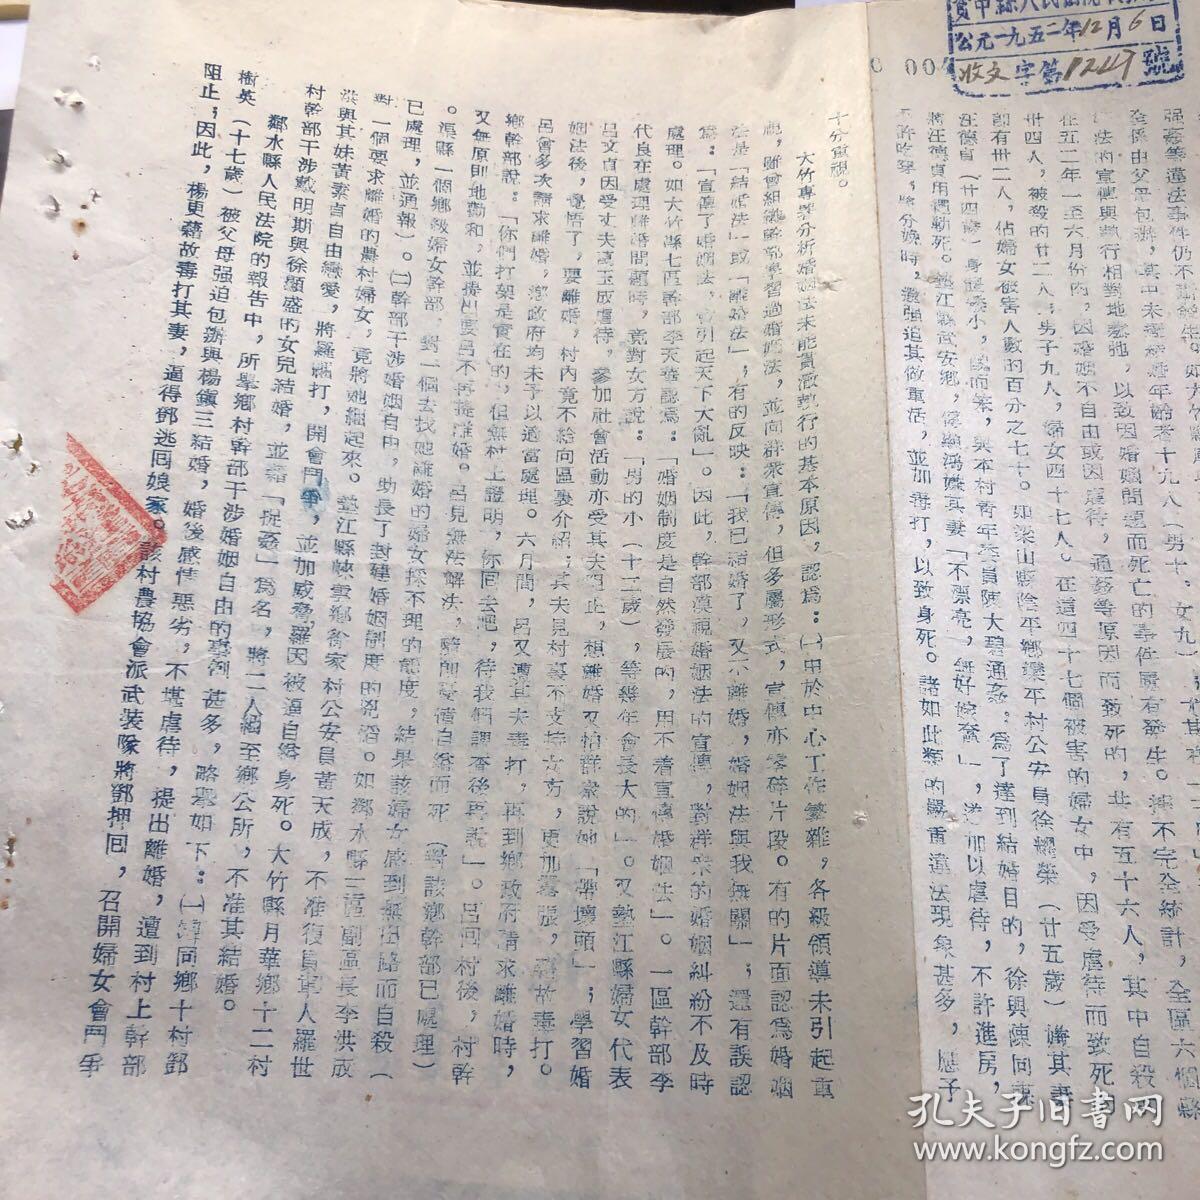 公元一九五二年12月6日
收文字第1247號
在五二年一至六月份的，因婚姻不自由或因虐待，通姦等原因而致死的，共有五十六人，其中自殺的
卅四人，被殺的廿二人，男子九人，婦女四十七人。在這四十七個被害的婦女中，因受虐待而致死的
即有卅二人，佔婦女被害人數的百分之七十。如梁山縣陰平鄉梁平村公安員徐耀榮（廿五歲）嫌其妻
汪德貞（廿四歲）身體矮小，與本村青年委員陳大碧通姦。為了達到結婚目的，徐與陳同謀
許吃穿，將分娩時，還強迫其做重活，並加毒打，以致身死。諸如此類的嚴重違法現象甚多，應予
十分重視。
大竹專署分析婚姻法未能貫澈執行的基本原因，認為：㈠由於中心工作繁雜，各級領導未引起重
視，雖曾組織幹部學習過婚姻法，並向群眾宣傳，但多屬形式，宣傳亦零碎片段。有的片面認為婚姻
法是「結婚法」或「離婚法」，有的反映：「我已結婚了，又不離婚，婚姻法與我無關」；還有誤認
為：「宣傳了婚姻法，會引起天下大亂」。因此，幹部漠視婚姻法的宣傳，對群眾的婚姻糾紛不及時
處理。如大竹縣七區幹部李天華認為：「婚姻制度是自然發展的，用不着宣傳婚姻法」。一區幹部李
代良在處理離婚問題時，竟對女方說：「男的小（十二歲），等幾年會長大的」。又墊江縣婦女代表
呂文貞因受丈夫高玉成虐待，參加社會活動亦受其夫阻止，想離婚又怕群眾說她「帶壞頭」；學習婚
姻法後，覺悟了，要離婚，村內竟不給向區裏介紹，其夫見村裏不支持女方，更加囂張，藉故毒打。
呂會多次請求離婚，鄉政府均未予以適當處理。六月間，呂又遭其夫毒打，再到鄉政府請求離婚時，
鄉幹部說：「你們打架是實在的，但無村上證明，你回去吧，待我們調查後再說」。呂回村後，村幹
又無原則地勸和，並捲出要呂不再提離婚。呂見無法解決，隨即憂憤自縊而死（對該鄉幹部已處理）
。渠縣一個鄉級婦女幹部，對一個去找她離婚的婦女採不理的態度，結果該婦女感到無出路而自殺（
已處理，並通報）。㈡幹部干涉婚姻自由，助長了封建婚姻制度的兇焰。如鄰水縣三區副區長李洪成
對一個要求離婚的農村婦女，竟將她綑起來。墊江縣峽寶鄉徐家村公安員黃天成，不准復員軍人羅世
洪與其妹黃素貞自由戀愛，將羅綑打，開會鬥爭，並加威脅，羅因被逼自縊身死。大竹縣月華鄉十二村
村幹部干涉戴明期與徐顯盛的女兒結婚，並藉「捉姦」為名，將二人綑至鄉公所，不准其結婚。
鄰水縣人民法院的報告中，所舉鄉村幹部干涉婚姻自由的事例甚多，略舉如下：㈠譚同鄉十村鄧
樹英（十七歲）被父母强迫包辦與楊鎮三結婚，婚後感情惡劣，不堪虐待，提出離婚，遭到村上幹部
阻止；因此，楊更藉故毒打其妻，逼得鄧逃回娘家。該村農協會派武裝隊將鄧押回，召開婦女會鬥爭
孔夫子旧书网
www.kongfz.com